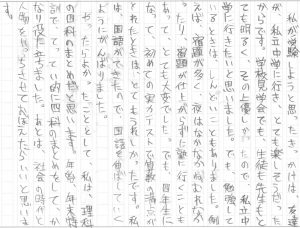 私が受験しようと思ったきっかけは、友達
が私立中学に行き、とても楽しそうだった
からです。学校見学会でも、生徒も先生もと
ても明るく、その上優しかったので、私立中
学に行きたいと思いました。でも、勉強して
いるときは、しんどいこともありました。例
えば、宿題が多く、夜はなかなかねむれなか
ったり、宿題が仕上がらずに塾に行くことも
あって、とても大変でした。でも、四年生に
なって、初めての実力テストで算数の満点が
とれたときは、とてもうれしかったです。私
は国語ができたので、国語を伸ばしていく
ようがんばりました。
やってよかったこととして、私は、理科
の四科のまとめだと思います。毎年、年末特
訓で、てってい的に四科のまとめをしてか
なり役に立ちました。あとは、社会の時代と
人物を一致させておぼえたらいいと思いま
す。